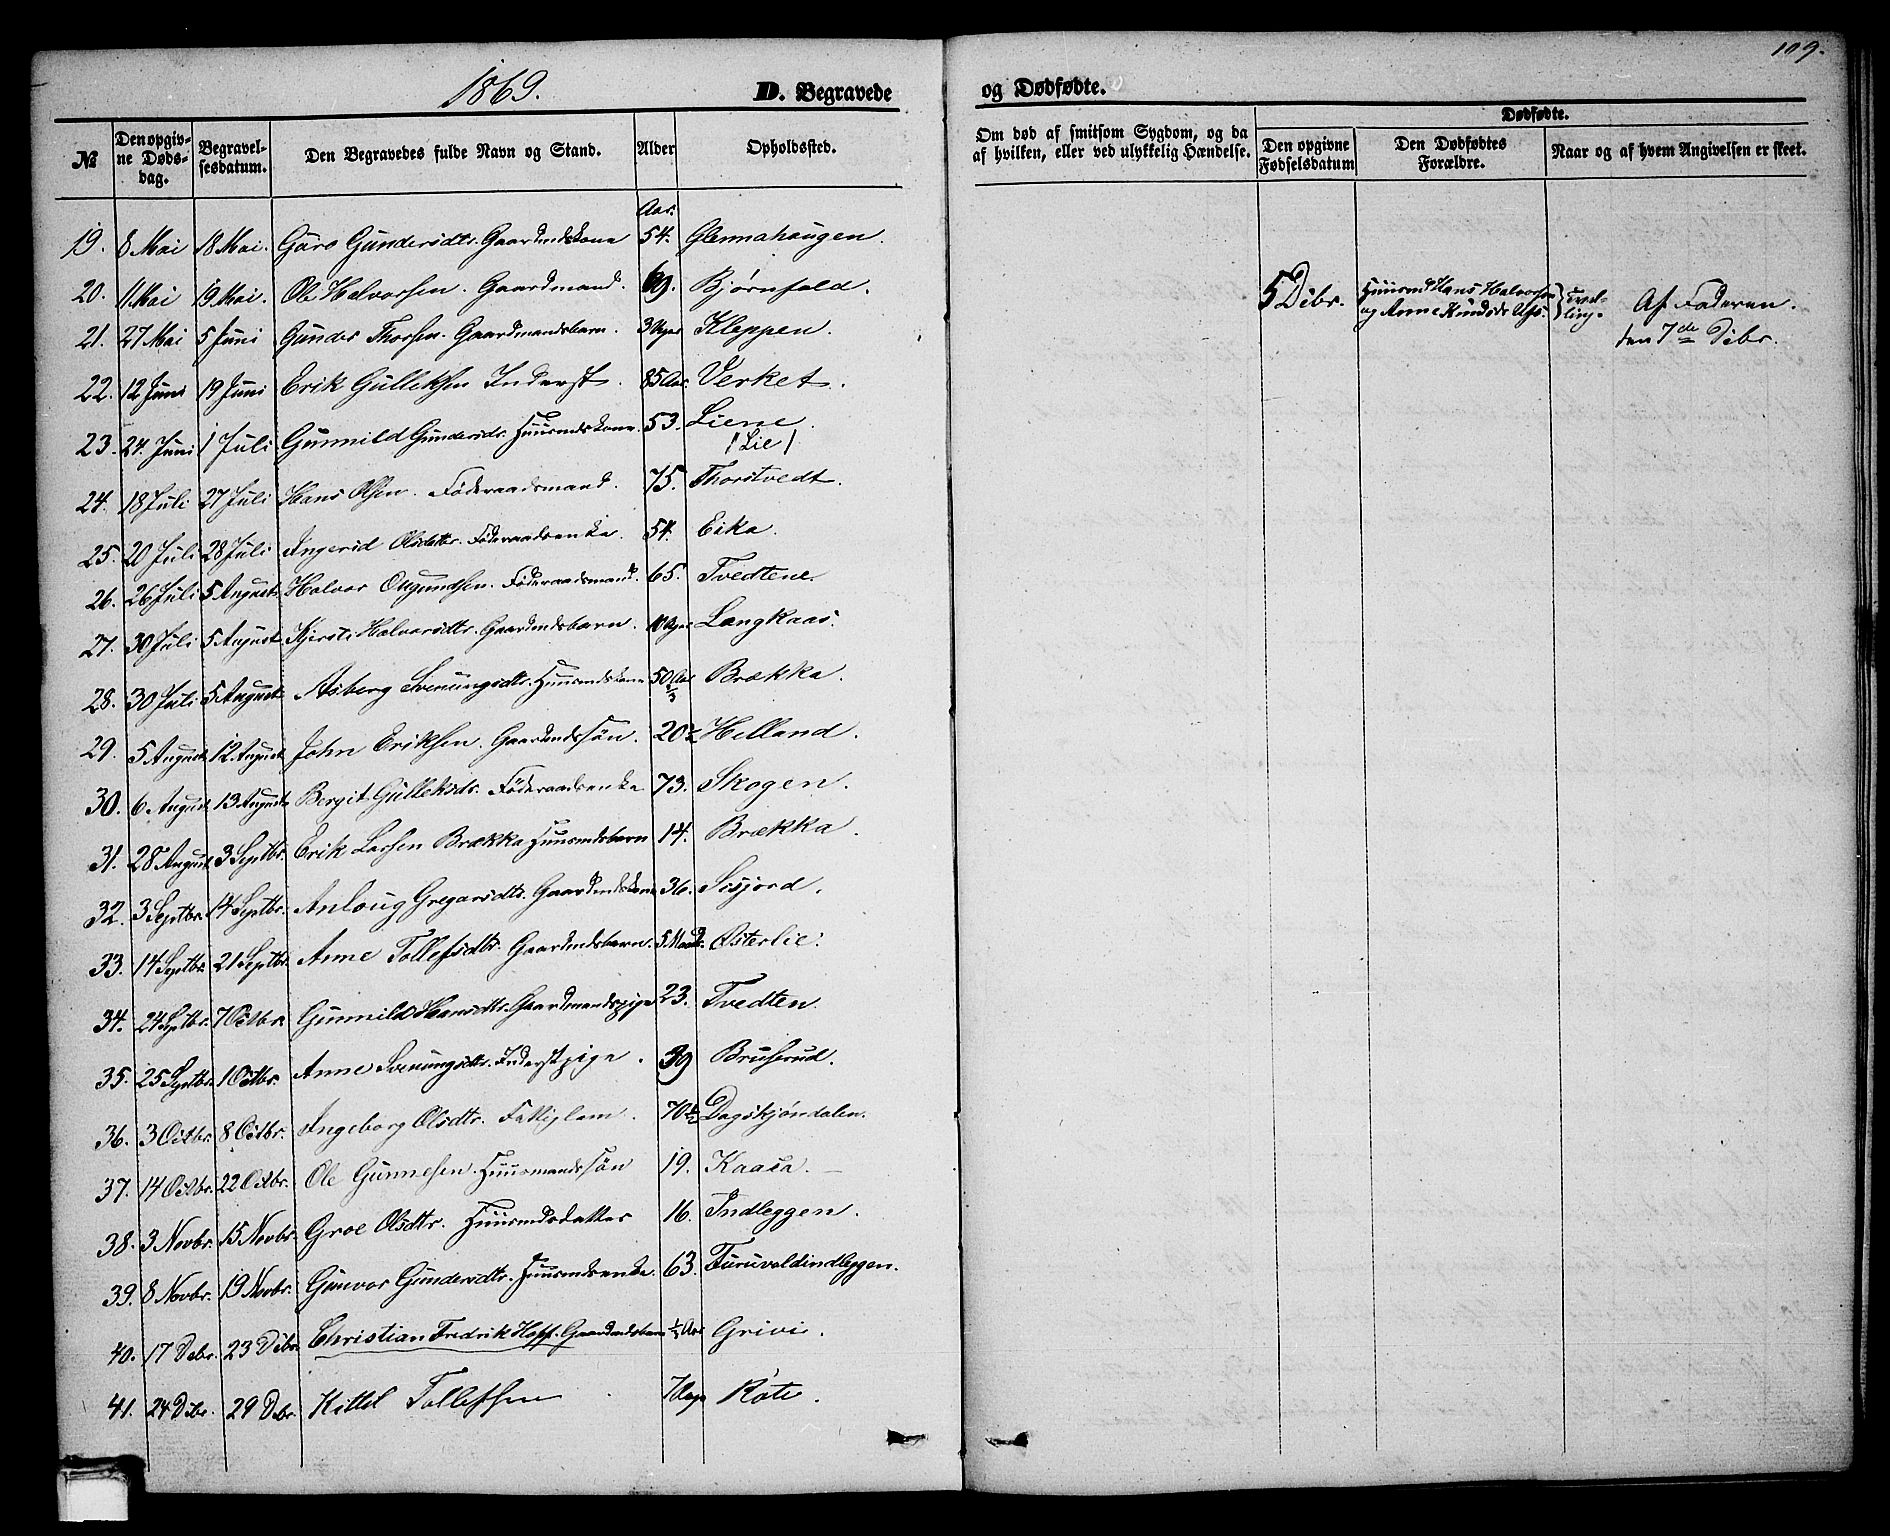 1869.
D. Begravede
og Dødfødte.
109.
№
Den opgivne Dødsdag.
Begravelsesdatum.
Den Begravedes fulde Navn og Stand.
Alder
Opholdssted.
Om død af smitsom Sygdom, og da af hvilken, eller ved ulykkelig Hændelse.
Dødfødte.
Den opgivne Fødselsdatum
Den Dødfødtes Forældre.
Naar og af hvem Angivelsen er skeet.
Aar.
19. 8 Mai 18 Mai. Guro Gundersdtr. Gaardmdskone 54. Glennahaugen.
20. 11. Mai 19 Mai. Ole Halvorsen. Gaardmand. 69. Bjørnfald.
21. 27 Mai 5 Juni Gunder Thorsen. Gaardmandsbarn. 3 Uger Kleppen.
22. 12 Juni 19 Juni Erik Gulleksen Inderst. 85 Aar. Verket.
23. 24. Juni 1 Juli Gunnild Gundersdr. Huusmdskone. 53. Liene.
/Lie/
24. 18 Juli 27 Juli Hans Olsen. Föderaadsmand. 75. Thorstvedt.
25. 20 Juli 28 Juli Ingerid Olsdattr. Föderaadsenke. 54. Eika.
26. 26 Juli 5 August Halvor Ougundsen. Föderaadsmand. 65. Tvedtene.
27. 30 Juli 5 August Kjersti Halvorsdtr. Gaardmdsbarn. Uger Langkaas.
28. 30 Juli 5 August Asberg Svenungsdtr. Huusmdskone 50 Aar Brækka.
29. 5 August 12 August John Eriksen. Gaardmdssön. 20½ Helland.
30. 6 August 13 August Bergit Gulleksdr. Föderaadsenke 73. Skogen.
31. 28 August 3 Septbr. Erik Larsen Brækka Huusmdsbarn 14. Brækka.
32. 3 Septbr. 14 Septbr. Anloug Gregarsdtr. Gaardmdskone 36. Sisjord.
33. 14 Septbr. 21 Septbr. Anne Tollefsdtr. Gaardmdsbarn. 5 Maadr. Østerlie.
34. 24 Septbr. 7 Octbr. Gunnild Hansdtr. Gaardmandspige 23. Tvedten.
35. 25 Septbr. 1 Octbr. Anne Svenungsdtr. Inderstpige. 39 Bruserud.
36. 3 Octbr. 8 Octbr. Ingeborg Olsdtr. Fattiglem. 70½ Dagskjøndalen.
37. 14 Octbr. 22 Octbr. Ole Gunnesen. Huusmandssön 19. Kaasa.
38. 3 Novbr. 15 Novbr. Groe Olsdtr. Huusmdsdatter 16. Indleggen.
39. 8 Novbr. 19 Novbr. Gunvor Gundersdtr. Huusmdsenke. 63. Furuvaldindleggen.
40. 17 Debr. 23 Debr. Christian Fredrik Hoff. Gaardmdsbarn ½ Aar Grivi.
41. 24 Debr. 29 Debr. Kittil Tollefsen 7 Dage Rote.
5 Debr. Huusmd Hans Halvorsen
og Anne Knudsdr. Tvelling. Af Faderen.
den 7de Debr.